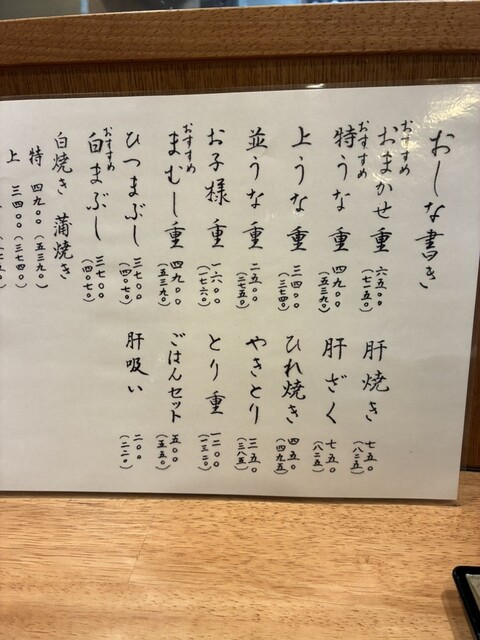 おしな書き
おすすめ
おまかせ重 六五〇〇 (七一五〇)
おすすめ
特うな重 四九〇〇 (五三九〇)
上うな重 三四〇〇 (三七四〇)
並うな重 二五〇〇 (二七五〇)
お子様重 一六〇〇 (一七六〇)
おすすめ
まむし重 四九〇〇 (五三九〇)
ひつまぶし 三七〇〇 (四〇七〇)
おすすめ
白まぶし 三七〇〇 (四〇七〇)
白焼き 蒲焼き
特 四九〇〇 (五三九〇)
上 三四〇〇 (三七四〇)
肝焼き 七五〇 (八二五)
肝ざく 七五〇 (八二五)
ひれ焼き 四五〇 (四九五)
やきとり 三五〇 (三八五)
とり重 一二〇〇 (一三二〇)
ごはんセット 五〇〇 (五五〇)
肝吸い 二〇〇 (二二〇)